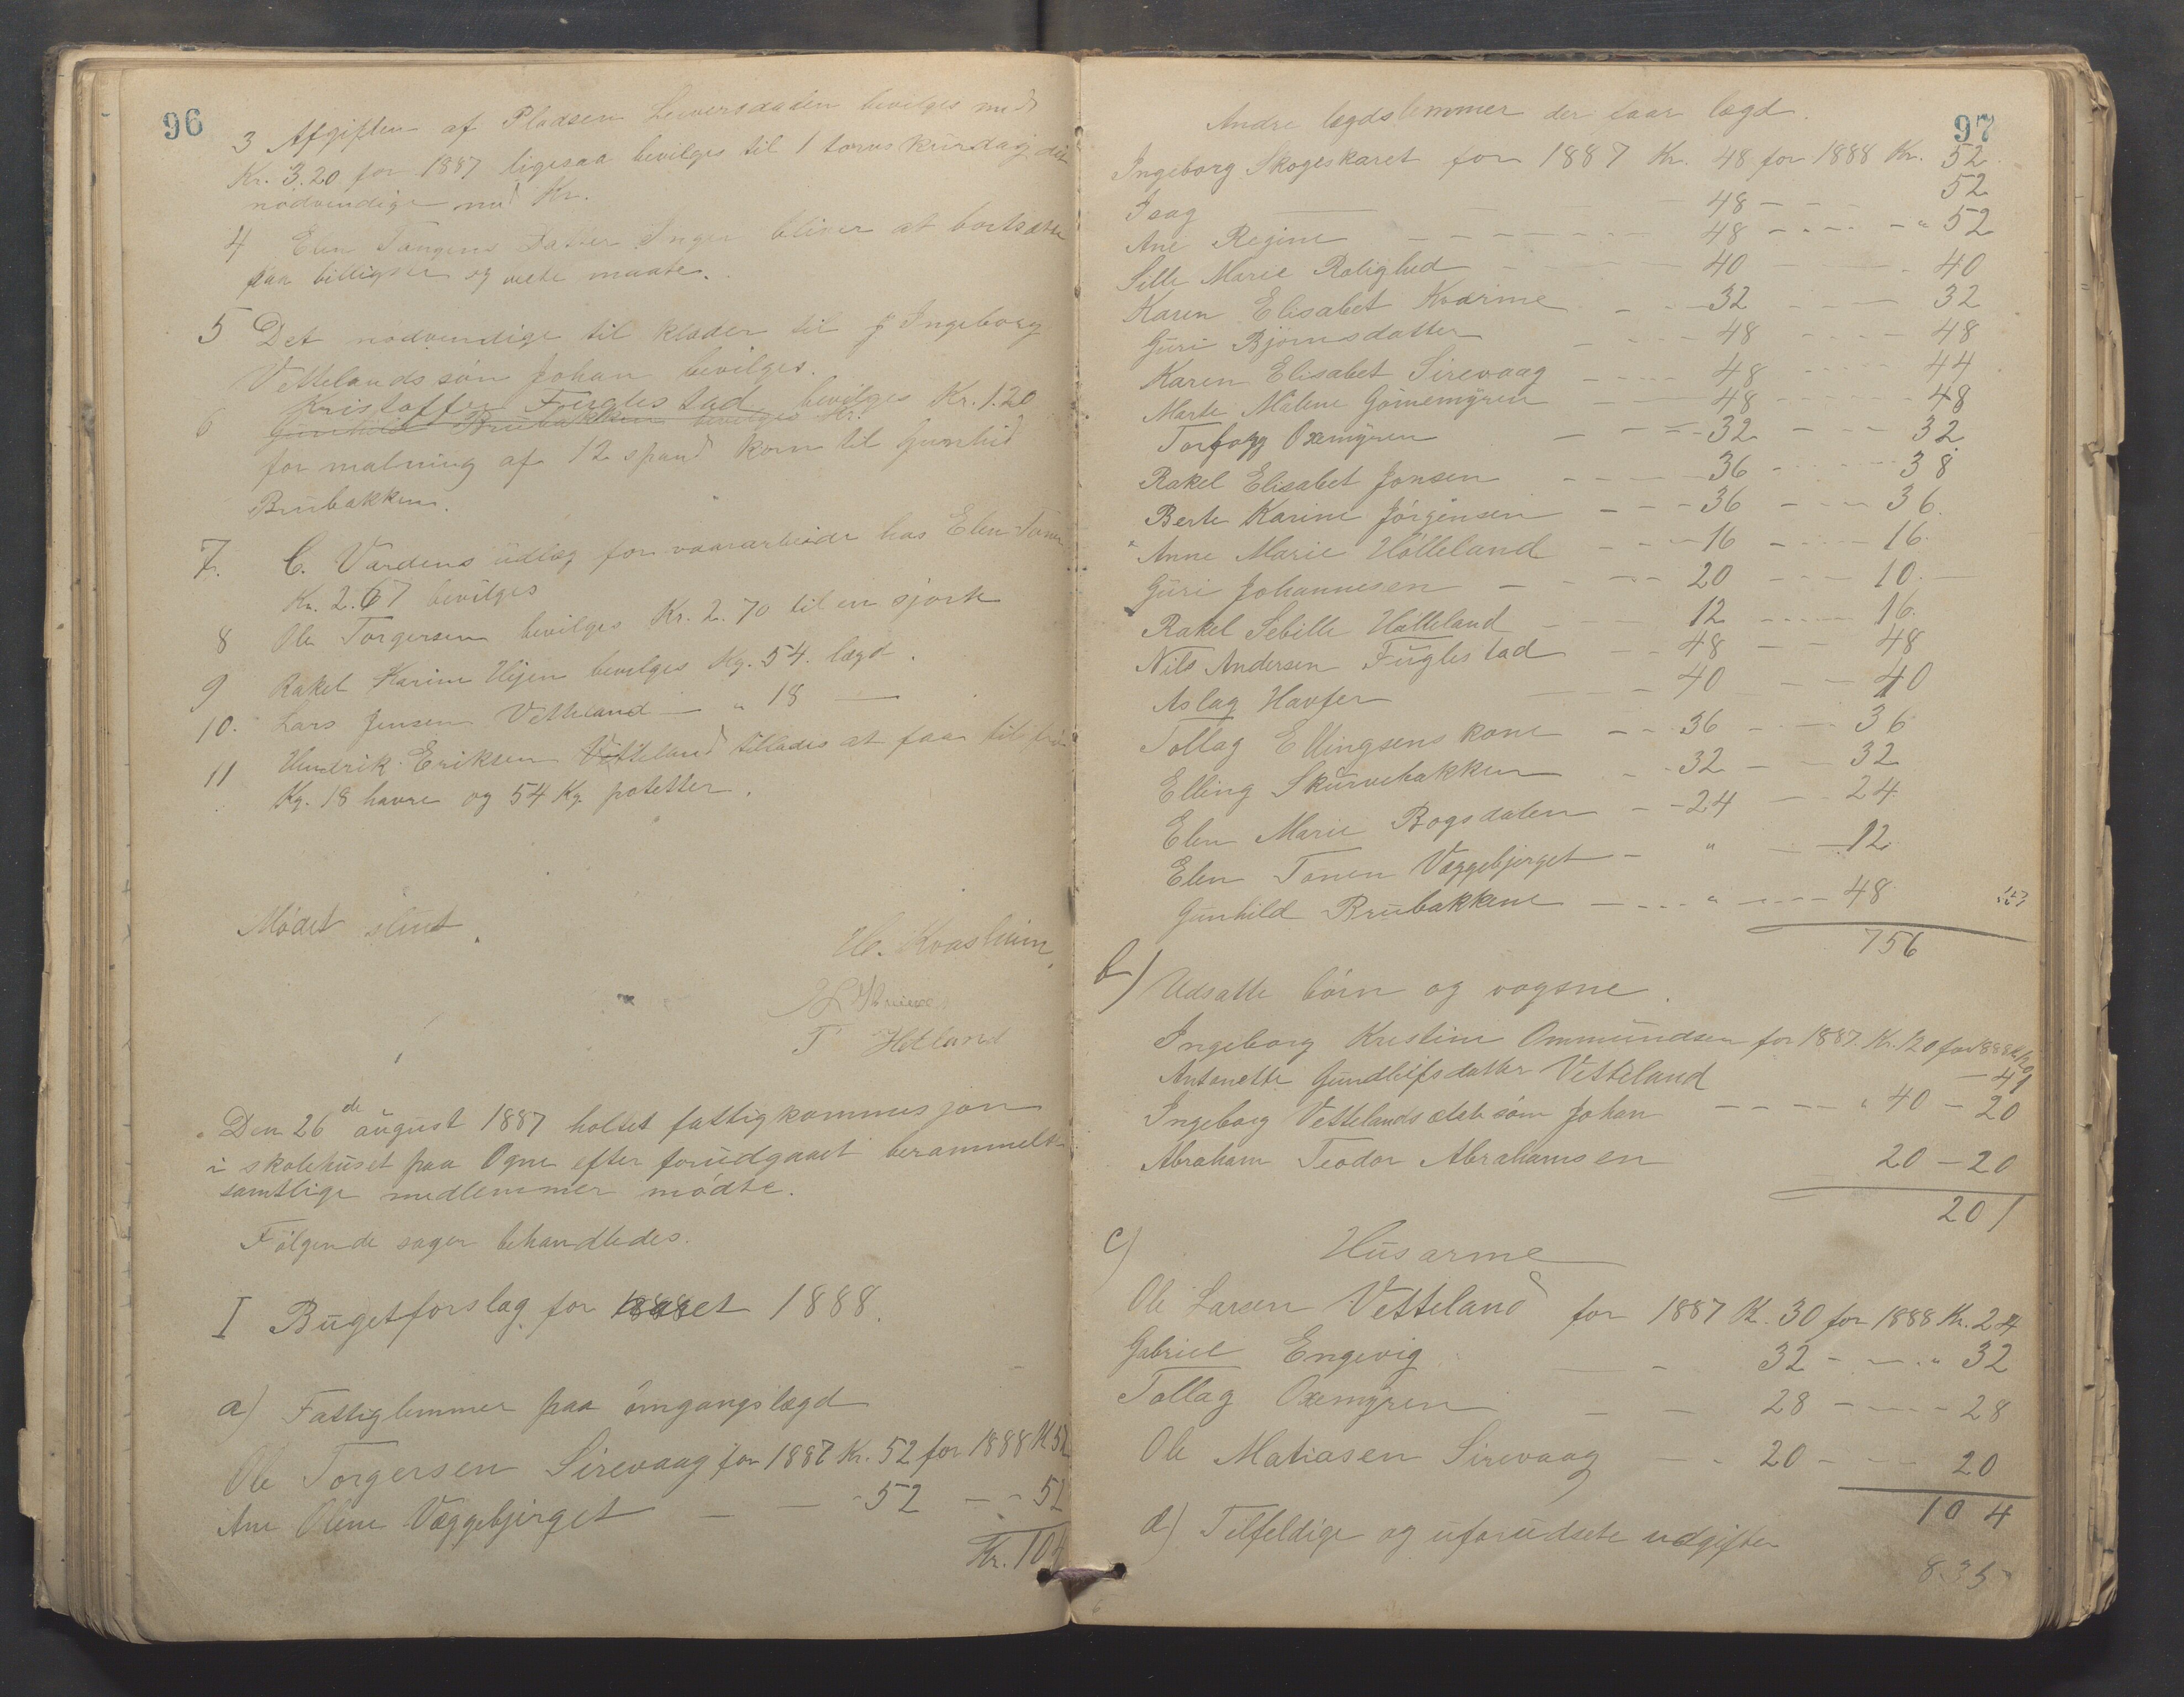 96
3 Afgiften af Pladsen bevilges med
Kr. 3.20 for 1887 ligesaa bevilges til 1 torvskurdag det
nødvendige med Kr.
4 Elen Tangens Datter Inger bliver at bortsætte
paa billigste og veste maate.
5 Det nødvendige til klæder til Ingeborg
Vettelands søn Johan bevilges.
Kristoffer Fuglestad bevilges Kr. 1.20
6 Gunhild Brubakken bevilges Kr.
for malning af 12 spand korn til Gunhild
Brubakken.
7. C. Vardens udlæg for vaararbeide hos Elen Tanen
Kr. 2.67 bevilges
8 Ole Torgersen bevilges Kr. 2.70 til en sjorte
9 Rakel Karine bevilges Kg. 54. lægd.
10. Lars Jensen Vetteland — „ 18 —
11 Hendrik Eriksen Vetteland tillades at faa
Kg. 18 havre og 54 Kg. potetter.
Mødet slut.
Kvasheim.
T Hetland
Den 26de august 1887 holtes fattigkommusjon
i skolehuset paa Ogne efter forudgaaet berammelse
samtlige medlemmer mødte.
Følgende sager behandledes.
I Bugetforslag for aaret 1888.
a) Fattiglemmer paa omgangslægd
Ole Torgersen Sirevaag for 1887 Kr. 52 for 1888 K 52
Ane Oline Væggebjerget — — - 52 — - 52
Kr. 104
97
Andre lægdslemmer der faar lægd.
Ingeborg Skogeskaret for 1887 Kr. 48 for 1888 Kr. 52
Isag — 48 - - - 52
Ane Regine - - - - 48 - - - - „ 52
Sille Marie Rolighed - - - 40 - - - 40
Karen Elisabet Kværme - - - 32 - - - 32
Guri Bjørnsdatter - - - 48 - - - 48
Karen Elisabet Sirevaag - - - 48 - - - 44
Marte Malene Gomemyren - - - 48 - - - 48
Oxemyren - - - 32 - - - 32
Rakel Elisabet Jonsen - - - 36 - - - 38
Berte Karine Jørgensen - - - 36 - - - 36.
Anne Marie Hølleland - - - 16 - - - 16.
Guri Johannesen - - - 20 - - - 10.
Rakel Sebille Hølleland - - - 12 - - - 16.
Nils Andersen Fuglestad - - 48 - - 48
Aslag - - - 40 - - - 40
Tollag Ellingsens kone - - 36 - - - 36
Elling Skurvebakken - - 32 - - 32
Elen Marie Bogsdalen - - 24 - - 24
Elen Tanen Væggebjerget - „ - - 12
Gunhild Brubakkene - - - - „ - - - 48
756
b) Udsatte børn og vogsne.
Ingeborg Kristine Ommundsen for 1887. Kr. 120 for 1888 Kr. 120
Antonette Gundleifsdatter Vetteland — 41
Ingeborg Vettelands søn Johan - - - - „ 40 - 20
Abraham Teodor Abrahamsen 20 - 20
201
c) Husarme
Ole Larsen Vetteland for 1887 K. 30 for 1888 Kr. 24
Gabriel Engevig — - 32 - - - „ 32
Tollag Oxemyren - - 28 - - - - 28
Ole Matiasen Sirevaag - - 20 - - - 20
104
d) Tilfeldige og uforudsete udgifter
835